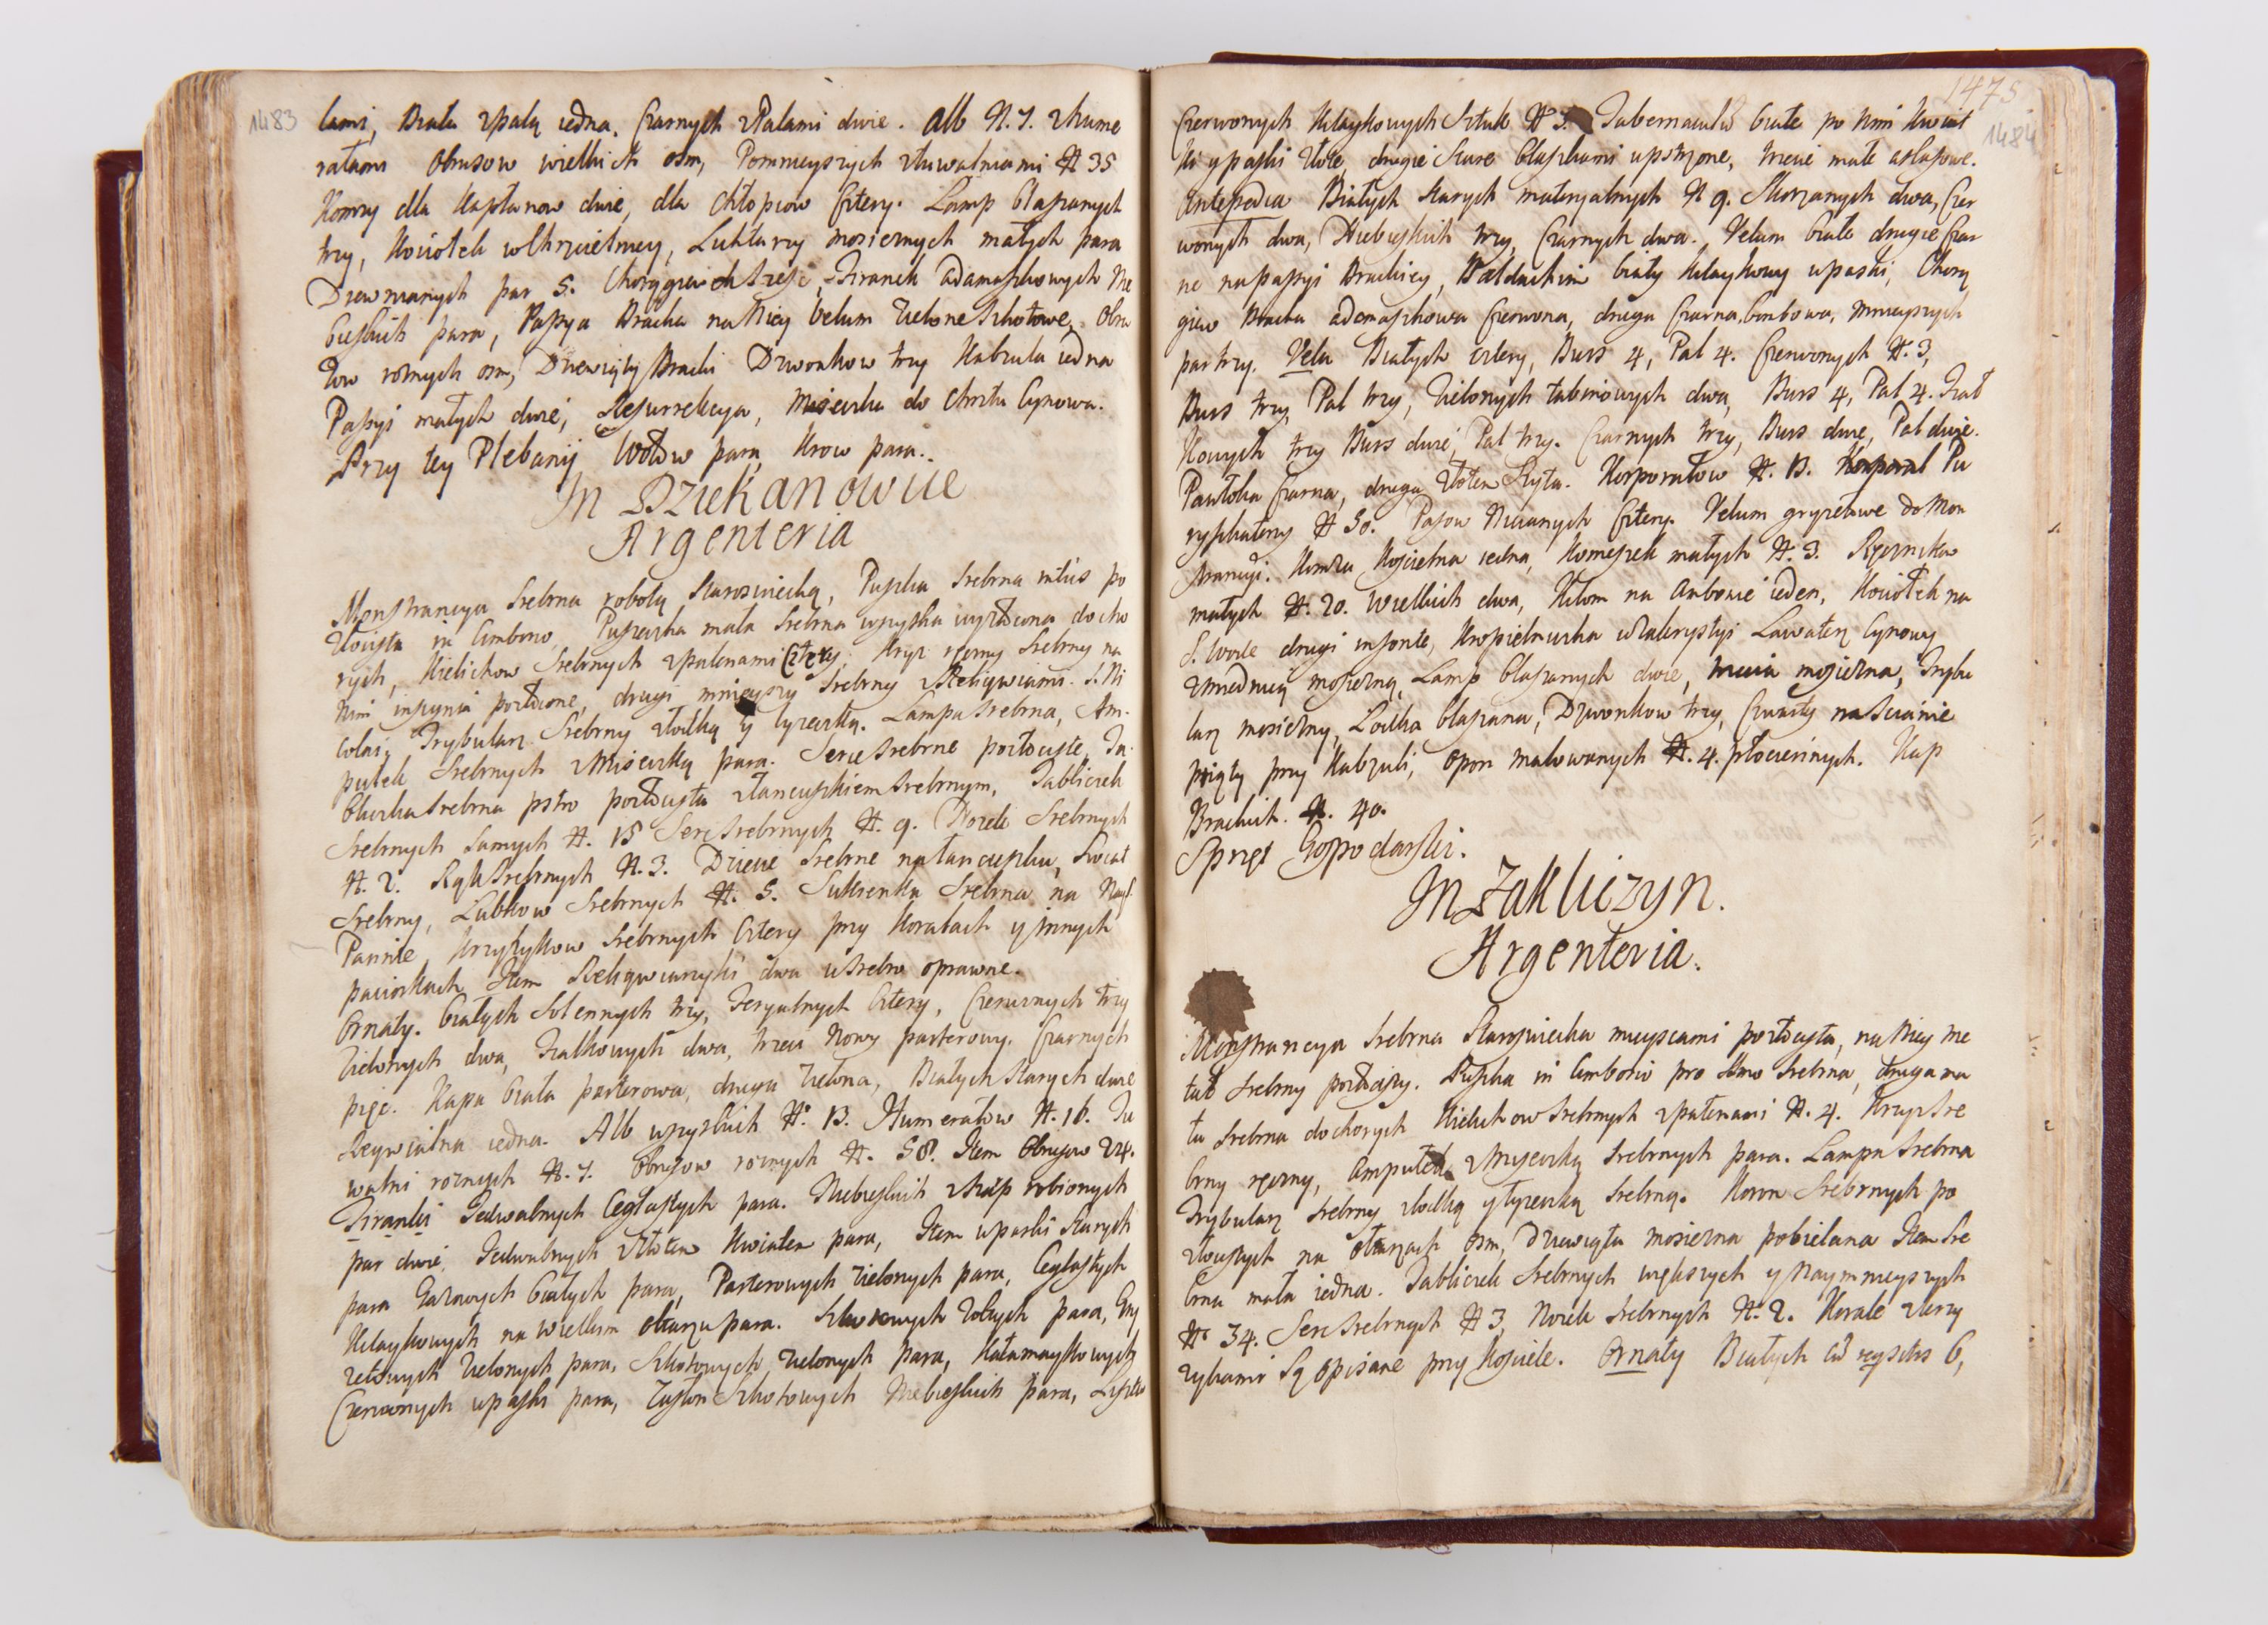 1483
lami, Biała z pałą iedna. Czarnych z Pałami dwie. Alb N. 7. z hume
rałami Obrusow wielkich ośm, Pomnieyszych z tuwalniami N 35
Komży dla Kapłanow dwie, dla Chłopcow cztery. Lamp blaszanych
trzy, Kociołek w Chrzcielnicy, Lichtarzy mosięznych małych para
Drewnianych par 5. Chorągiewek sześć, Firanek adamaszkowych Nie
bieskich para, Passya Bracka na Niey Velum Zielone Szkotowe, Obra
zow roznych osm, Dziewięty Bracki Dzwonkow trzy Kabzula iedna
Passyi małych dwie, Resurrekcya, Miseczka do Chrztu Cynowa.
Przy tey Plebanij Wołow para, Krow para.
In Dziekanowice
Argenteria
Monstrancya Srebrna robotą Staroswiecką, Puszka Srebrna intus po
złocista in Ciborio, Puszeczka mała Srebrna wszystka wyzłocona do cho
rych, Kielichow Srebrnych z patenami Cztery, Krzyz ręczny Srebrny na
Nim insignia pozłocone, drugi mnieyszy Srebrny z Reliqwiami S. Ni
colai, Trybularz Srebrny z łodką y łyzeczką. Lampa srebrna, Am-
pułek Srebrnych z Miseczką para. Serce srebrne pozłociste, Ta
bliczka srebrna pstro pozłocista z łancuszkiem srebrnym, Tabliczek
Srebrnych Samych N. 18 Serc srebrnych N. 9. Nozek Srebrnych
N. 2. Rąk srebrnych N. 3. Dziecie Srebrne na łancuszku, Swiat
Srebrny, Lubkow Srebrnych N. 5. Sukienka Srebrna na Nays.
Pannie Krzyzykow Srebrnych Cztery przy Koralach y innych
paciorkach Item Reliqwiarzyki dwa w srebro oprawne.
Ornaty. Białych Solennych trzy, Feryalnych Cztery, Czerwonych trzy
Zielonych dwa, Fiałkowych dwa, trzeci Nowy parterowy. Czarnych
pięć. Kapa biała parterowa, druga Zielona, Białych Starych dwie
Reqwialna iedna. Alb wszystkich N. 13. Humerałow N. 16. Tu
walni roznych N. 7. Obrusow roznych N. 58. Item Obrusow 24.
Firanki Jedwabnych Ceglastych para. Niebieskich robionych
par dwie, Jedwabnych Kwiatem para, Item w paski Starych
para Gazowych białych para, Parterowych zielonych para, Ceglastych
Kitaykowych na wielkim ołtarzu para. zołtych para, Gry
zetowych Zielonych para, Szkotowych zielonych para, Kałamaykowych
Czerwonych w paski para, Zasłon Szkotowych Niebieskich para,
1475
1484
Czerwonych Kitaykowych Sztuk N 3. Tabernaculū białe po Nim Kwiat
ki y paski złote, drugie stare blaszkami upstrzone, trzecie małe atłasowe.
Antepedia Białych starych materyalnych N 9. Skorzanych dwa, Czer
wonych dwa, Niebieskich trzy, Czarnych dwa. Velum białe drugie Czar
ne na passyi Brackiey, Baldachim biały Kitaykowy w paski, Chorą
giew Bracka adamaszkowa Czerwona, druga Czarna bombowa, mnieyszych
par trzy. Vela Białych cztery, Burs 4, Pal 4. Czerwonych N. 3,
Burs trzy, Pal trzy, Zielonych tabinowych dwa, Burs 4, Pal 4. Fiał
kowych trzy Burs dwie, Pal trzy. Czarnych trzy, Burs dwie, Pal dwie.
Pawłoka Czarna, druga złotem szyta. Korporałow N. 13. Korporał Pu
ryfikaterzy N 30. Pasow Nicianych Cztery. Velum gryzetowe do Mon
strancyi. Komza Koscielna iedna, Komeszek małych N. 3. Ręcznikow
małych N. 20. Wielkich dwa, Kilim na Ambonie ieden, Kociołek na
S. Wodę drugi in fonte, Kropielniczka w Zakrystyi Lawaterz Cynowy
z miednicą mosiezną, Lamp blaszanych dwie, trzecia mosiezna, Trybu
larz mosiezny, Łodka blaszana, Dzwonkow trzy, Czwarty na Scianie
piąty przy Kabzuli, Opon malowanych N. 4. płociennych. Kap
Brackich. N. 40.
Sprzęt Gospodarski.
In Zakliczyn.
Argenteria.
Monstrancya Srebrna Staroswiecka mieyscami pozłocista, na Niey Me
tal srebrny pozłocisty. Puszka in Ciborio pro Smo Srebrna, druga ma
ła srebrna do chorych Kielichow srebrnych z patenami N. 4. Krzyz Sre
brny ręczny, Ampułek z Miseczką srebrnych para. Lampa srebrna
Trybularz srebrny z łodką y łyzeczką srebrną. Koron Srebrnych po
złocistych na ołtarzach osm, Dziewiąta mosiezna pobielana Item Sre
brna mała iedna. Tabliczek Srebrnych większych y Naymnieyszych
N 34. Serc srebrnych N 3, Nozek srebrnych N. 2. Korale
Są opisane przy Kosciele. Ornaty Białych 6,